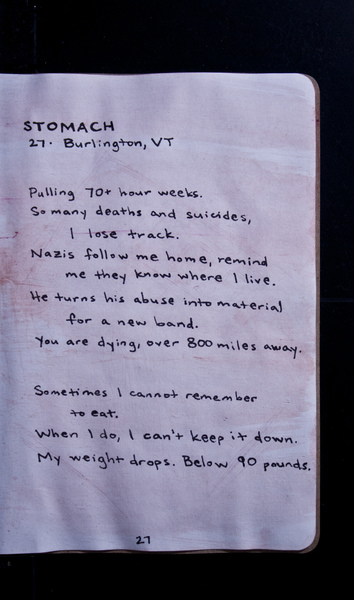 STOMACH
27. Burlington, VT
Pulling 70+ hour weeks.
So many deaths and suicides,
I lose track.
Nazis follow me home, remind
me they know where I live.
He turns his abuse into material
for a new band.
You are dying, over 800 miles away.
Sometimes I cannot remember
to eat.
When I do, I can't keep it down.
My weight drops. Below 90 pounds.
27